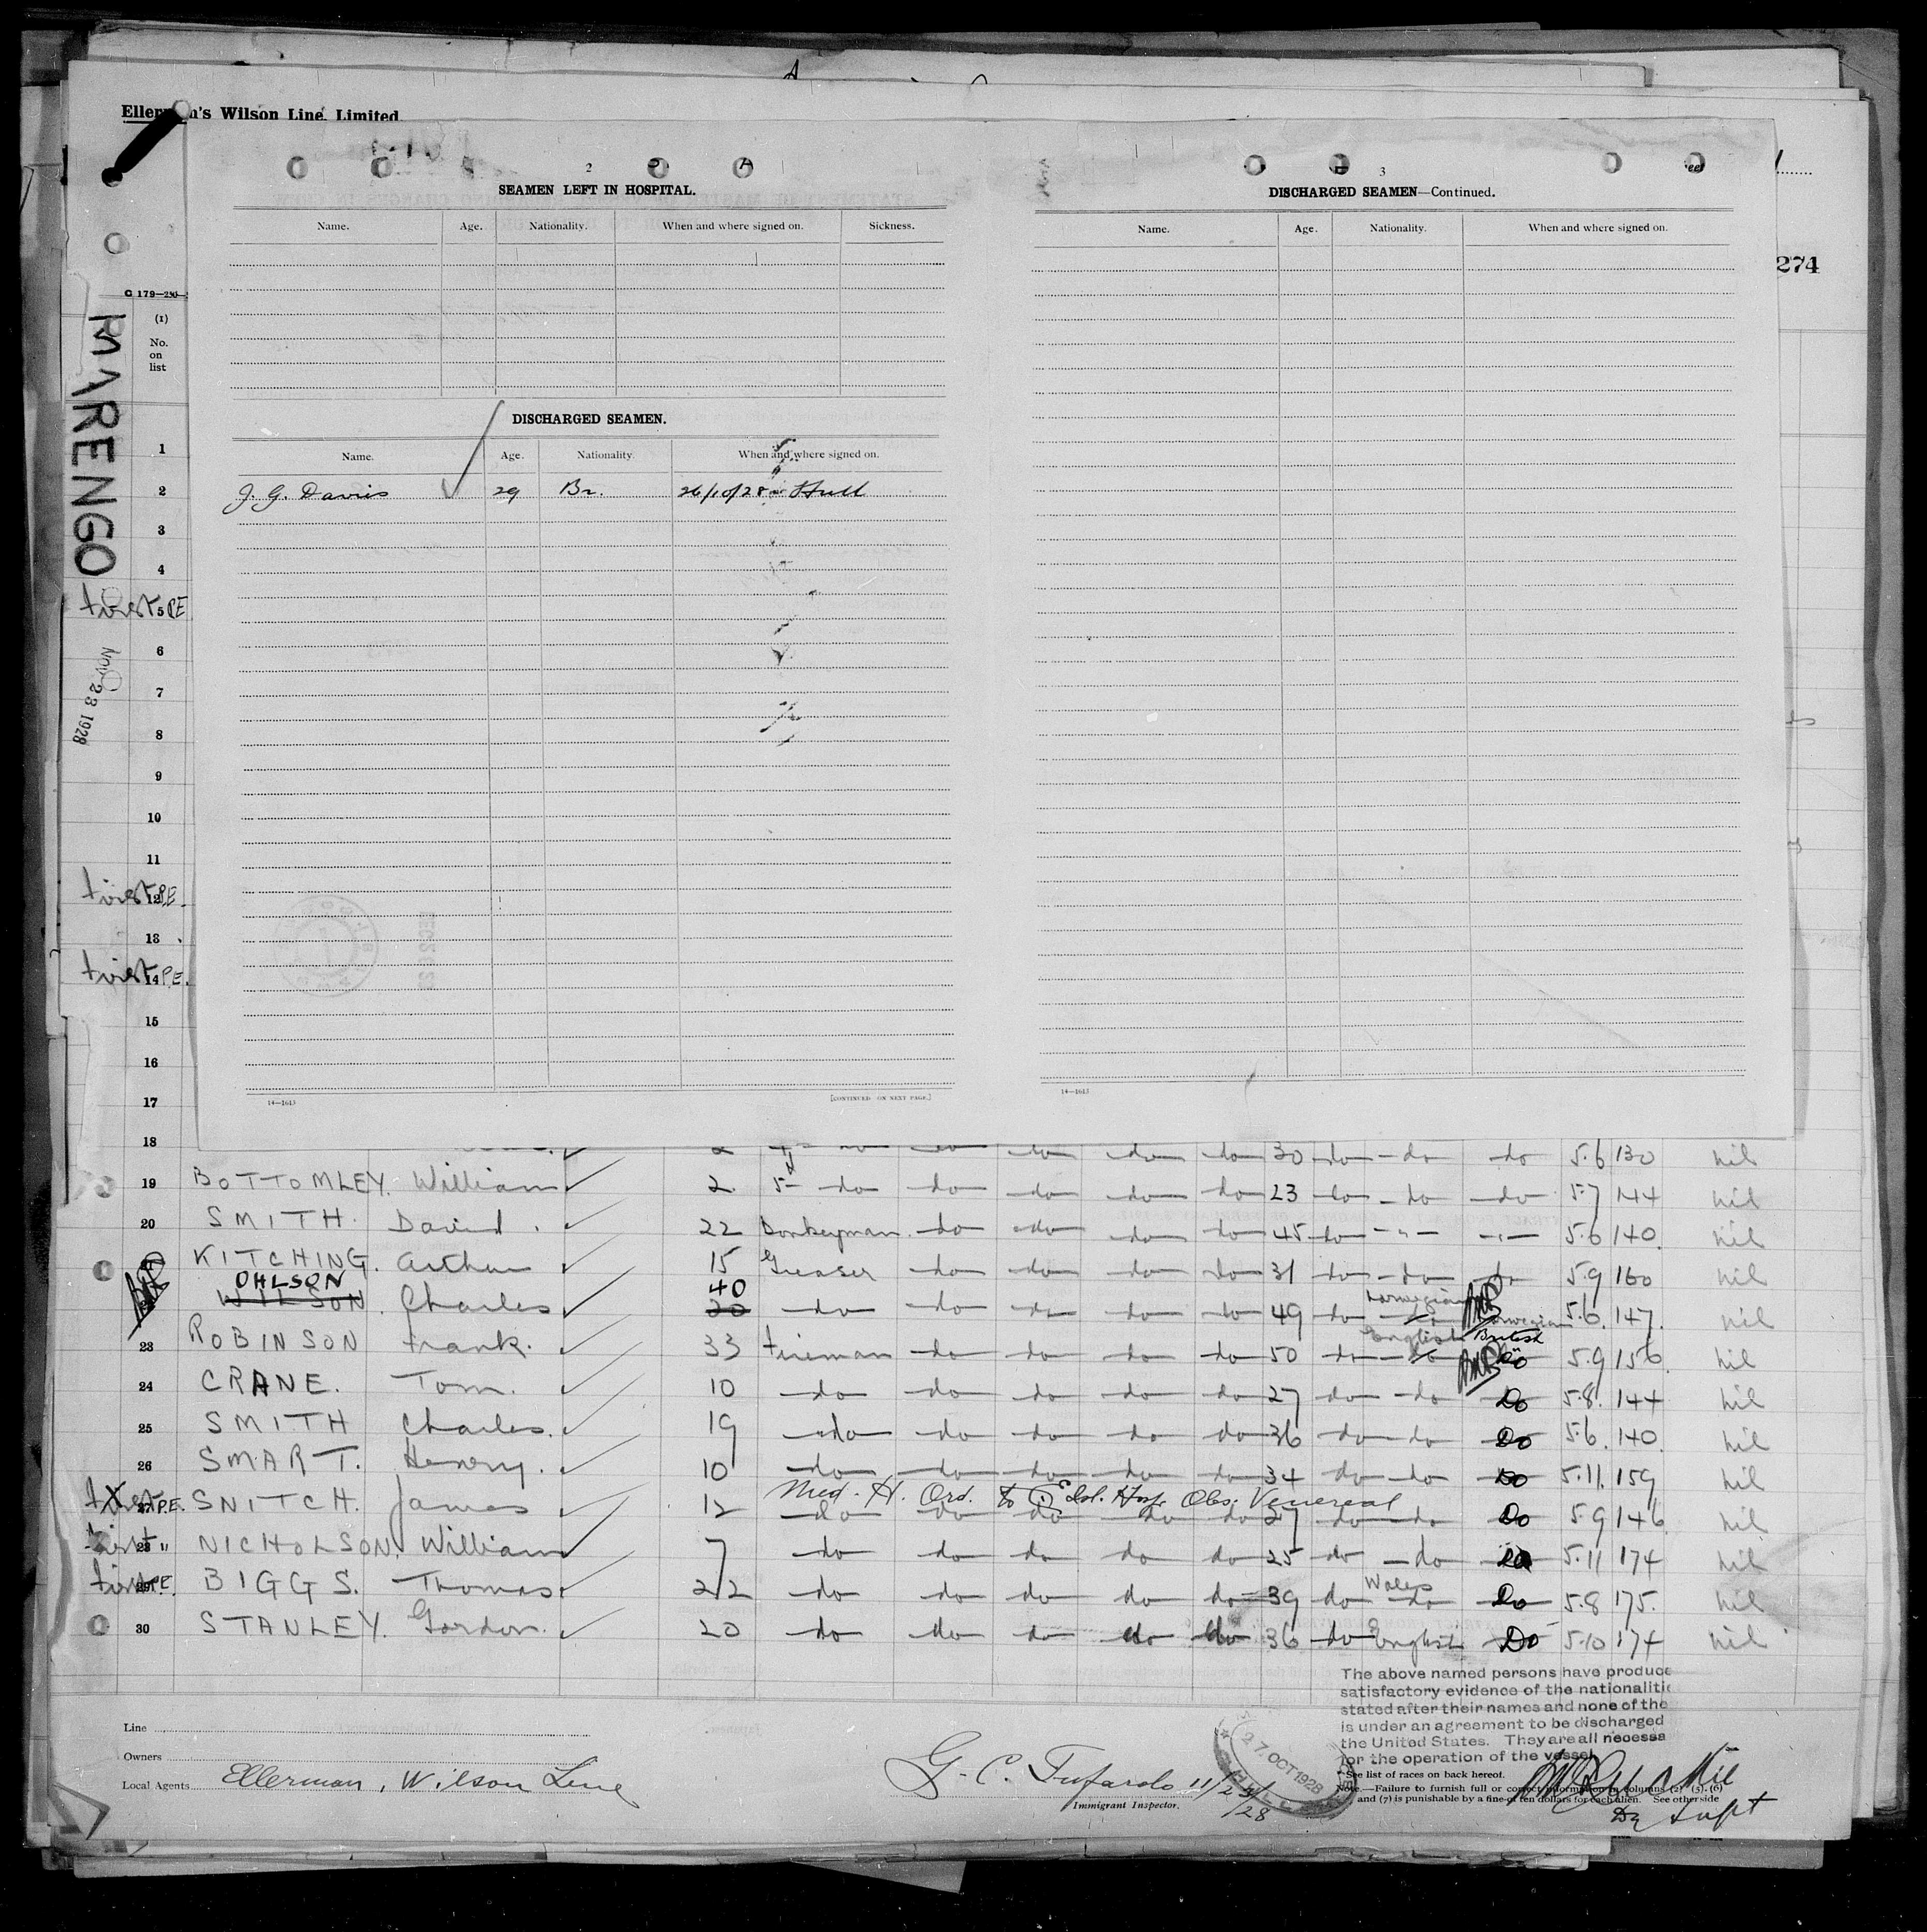 Ellerman's Wilson Line, Limited
2
SEAMEN LEFT IN HOSPITAL.
Name. Age. Nationality. When and where signed on. Sickness.
DISCHARGED SEAMEN.
Name. Age. Nationality. When and where signed on.
J. G. Davies 29 Br. 26/10/28 Hull
14—1615 [CONTINUED ON NEXT PAGE.]
3
DISCHARGED SEAMEN—Continued.
Name. Age. Nationality. When and where signed on.
14—1615
274
(1)
No.
on
list
MARENGO
NOV 23 1928
1
2
3
4
first 5 P.E.
6
7
8
9
10
11
first 12 P.E.
13
first 14 P.E.
15
16
17
18 do do do do 30 do do do 5.6 130 nil
19 BOTTOMLEY. William 2 5 do do do do do 23 do do do 5.7 144 nil
20 SMITH. David. 22 Donkeyman do do do do 45 do " " 5.6 140 nil
KITCHING. Arthur 15 Greaser do do do do 31 do do do 5.9 160 nil
OHLSON 40 Norwegian
WILSON. Charles 20 do do do do do 49 do do Norwegian 5.6. 147. nil
English British
23 ROBINSON Frank. 33 Fireman do do do do 50 do do Do 5.9 156 nil
24 CRANE. Tom. 10 do do do do do 27 do do Do 5.8. 144 nil
25 SMITH Charles. 19 do do do do do 36 do do Do 5.6. 140. nil
26 SMART. Henry. 10 do do do do do 34 do do Do 5.11. 159 nil
Med. H. Ord. to Isl. Hosp. Obs. Venereal
first 27 P.E. SNITCH. James 12 do do do do do 27 do do Do 5.9 146 nil
first 28 " NICHOLSON. William 7 do do do do do 25 do do Do 5.11 174 nil
Wales
first 29 P.E. BIGGS. Thomas. 22 do do do do do 39 do do Do 5.8 175. nil
30 STANLEY. Gordon. 20 do do do do do 36 do English Do 5.10 174 nil
The above named persons have produce
satisfactory evidence of the nationalitie
stated after their names and none of the
is under an agreement to be discharged
the United States. They are all necessa
for the operation of the vessel
Line
Owners
Local Agents Ellerman, Wilson Line
G. C. Tufarolo 11/23/28
Immigrant Inspector.
27. OCT 1928
HULL
* See list of races on back hereof.
Note.—Failure to furnish full or correct information in columns (2) (5), (6)
and (7) is punishable by a fine of ten dollars for each alien. See other side